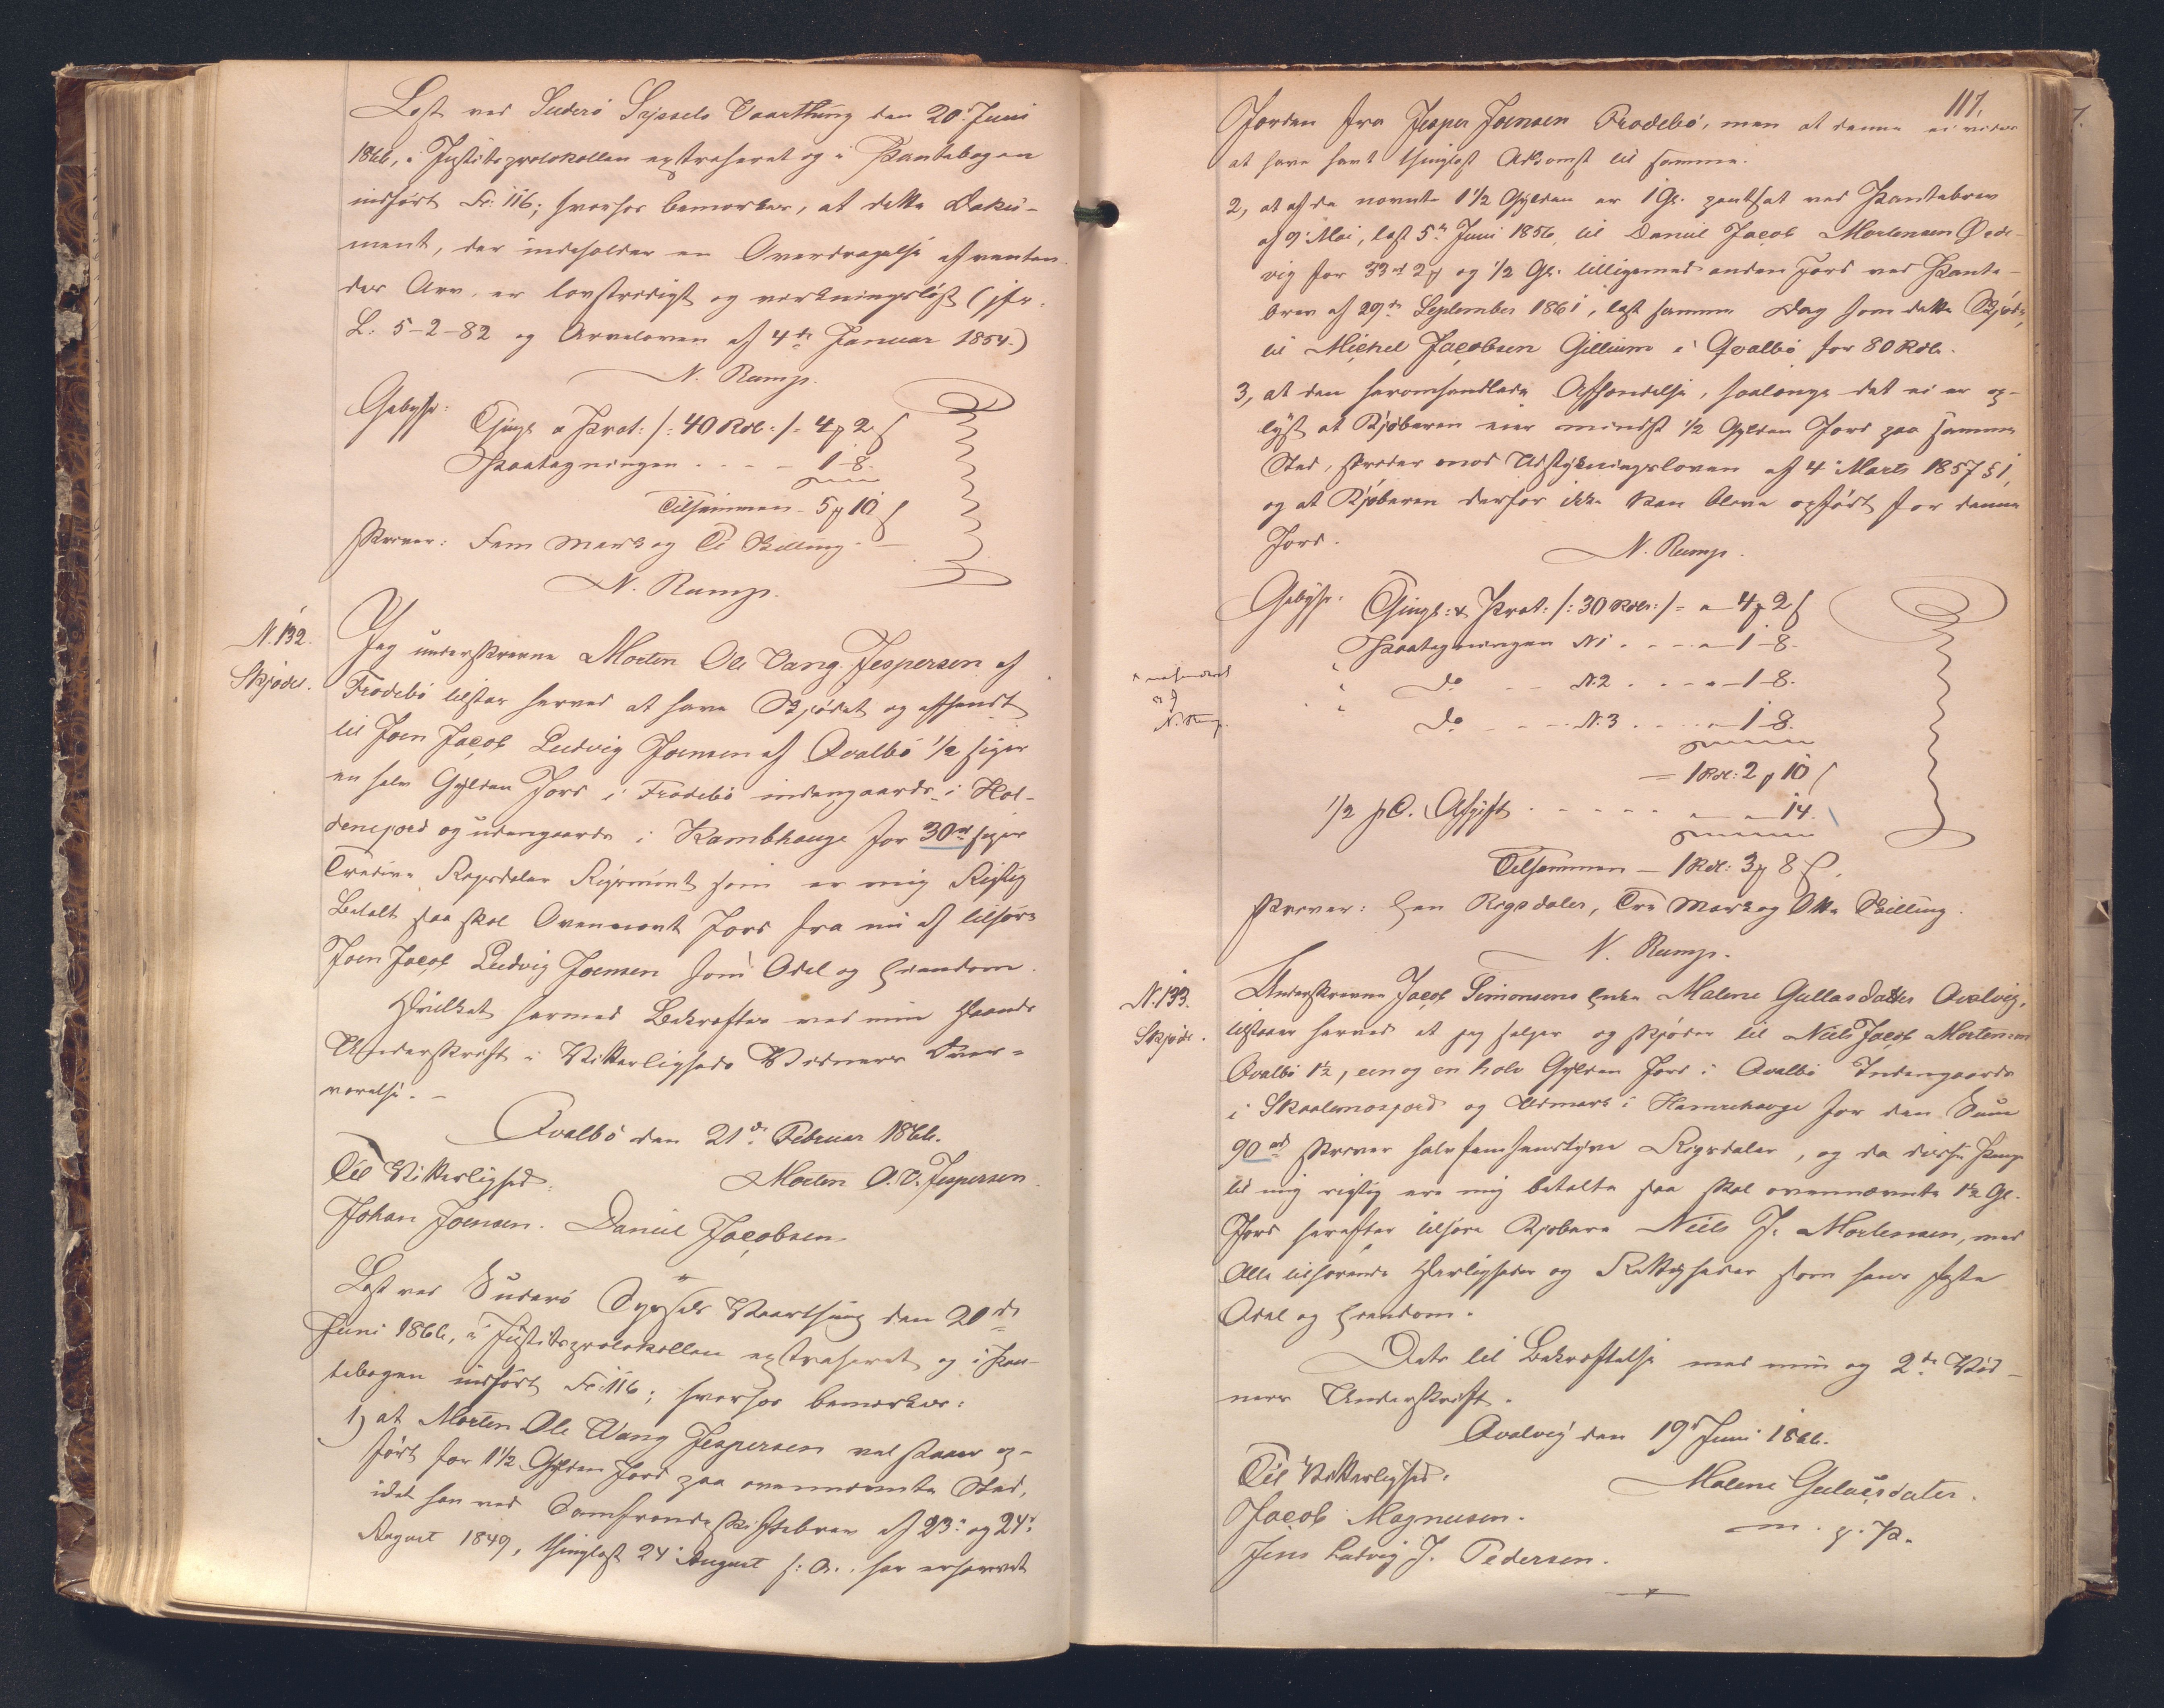 Læst ved Suderø Syssels Vaarthing den 20de Juni
1866, i Justitsprotokollen extraheret og i Pantebogen
indført Fo: 116; hvorhos bemærkes, at dette Doku-
ment, der indeholder en Overdragelse af venten-
des Arv, er lovstridigt og virkningsløst (jfr.
L: 5-2-82 og Arveloven af 4de Januar 1854.)
N. Rump.
Gebyhr:
Thingl a Prot: /: 40 Rdl: /- 4 ₰ 2 β
Paategningen . . . - 1 - 8.
Tilsammen - 5 ₰ 10 β
skriver: Fem Mark og Ti Skilling. —
N. Rump.
N. 132.
Skjøde.
Jeg underskrevne Morten Ole Vang Jespersen af
Frodebö tilstar herved at have Skjødet og afhendt
til Joen Jacob Ludvig Joensen af Qvalbö 1/2 siger
en halv Gylden Jord i Frodebö indengaards i Hol-
denejord og udengaards i Kambhauge for 30rd siger
Tredive Rigsdaler Rigsmønt som er mig Rigtig
Betalt saa skal Ovennævnt Jord fra nu af tilhøre
Joen Jacob Ludvig Joensen som Odel og Eiendom.
Hvilket hermed Bekræftes med min Haands
Underskrift i Vitterligheds Vidners Over-
værelse. —
Qvalbö den 21de Februar 1866.
Til Vitterlighed:
Morten O. V. Jespersen.
Johan Joensen. Daniel Jacobsen.
Læst ved Suderø Syssels Vaarthing den 20de
Juni 1866, i Justitsprotokollen extraheret og i Pan-
tebogen indført Fo: 116; hvorhos bemærkes:
1) at Morten Ole Vang Jespersen vel staaer op-
ført for 1 1/2 Gylden Jord paa ovennævnte Sted,
idet han ved Samfrændeskiftebrev af 23de og 24de
August 1849, thinglæst 24de August s: A., har erhvervet
117.
Jorden fra Jesper Joensen Frodebö, men at denne ei vides
at have havt thinglæst Adkomst til samme.
2, at af de nævnte 1 1/2 Gylden er 1 Gl. pantsat ved Pantebrev
af 9de Mai, læst 5te Juni 1856, til Daniel Jacob Mortensen Øre-
vig for 33rd 2 ₰ og 1/2 Gl. tilligemed anden Jord ved Pante-
brev af 29de September 1861, læst samme Dag som dette Skjøde,
til Michel Jacobsen Gillium i Qvalbö for 80 Rdl.
3, at den heromhandlede Afhændelse, saalænge det ei er op-
lyst at Kjøberen eier mindst 1/2 Gylden Jord paa samme
Sted, strider mod Udstykningsloven af 4de Marts 1857 § 1,
og at Kjøberen derfor ikke kan blive opført for denne
Jord.
N. Rump.
Gebyhr. Thingl: & Prot: /: 30 Rdl: /- = 4 ₰ 2 β
Paategningen N 1 . . . - 1 - 8.
do - - N. 2 . . . - 1 - 8.
do - - N. 3 . . . - 1 - 8.
= 1 Rdl: 2 ₰ 10 β
1/2 pC. Afgift . . . . . - - 14.
Tilsammen - 1 Rdl: 3 ₰ 8 β.
N. Rump.
skriver: Een Rigsdaler, Tre Mark og Otte Skilling.
N. Rump.
N. 133.
Skjøde.
Underskrevne Jacob Simonsens Enke Malene Gullasdatter Qvalvig,
tilstaaer herved at jeg sælger og skjøder til Niels Jacob Mortensen
Qvalbö 1 1/2, een og en halv Gylden Jord i Qvalbö Indengaards
i Skaalemosejord og Udmark i Hamrehauge for den Sum
90rd skriver halvfemsendstyve Rigsdaler, og da disse Penge
til mig rigtig ere mig betalte saa skal ovennævnte 1 1/2 Gl.
Jord herefter tilhøre Kjøbere Niels J. Mortensen, med
Alle tilhørende Herligheder og Rettigheder som hans faste
Odel og Eiendom.
Dets til Bekræftelse med min og 2de Vid-
ners Underskrift.
Qvalvig den 19de Juni 1866.
Til Vitterlighed:
Malene Gulasdater.
Jacob Magnusen.
m. p. P.
Jens Ludvig J. Pedersen.